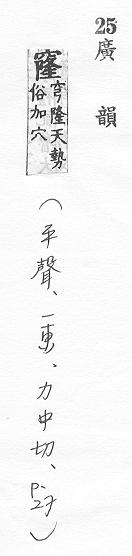 25廣韻
窿穹隆天勢
俗加穴
(平聲、一東、力中切、P.27)